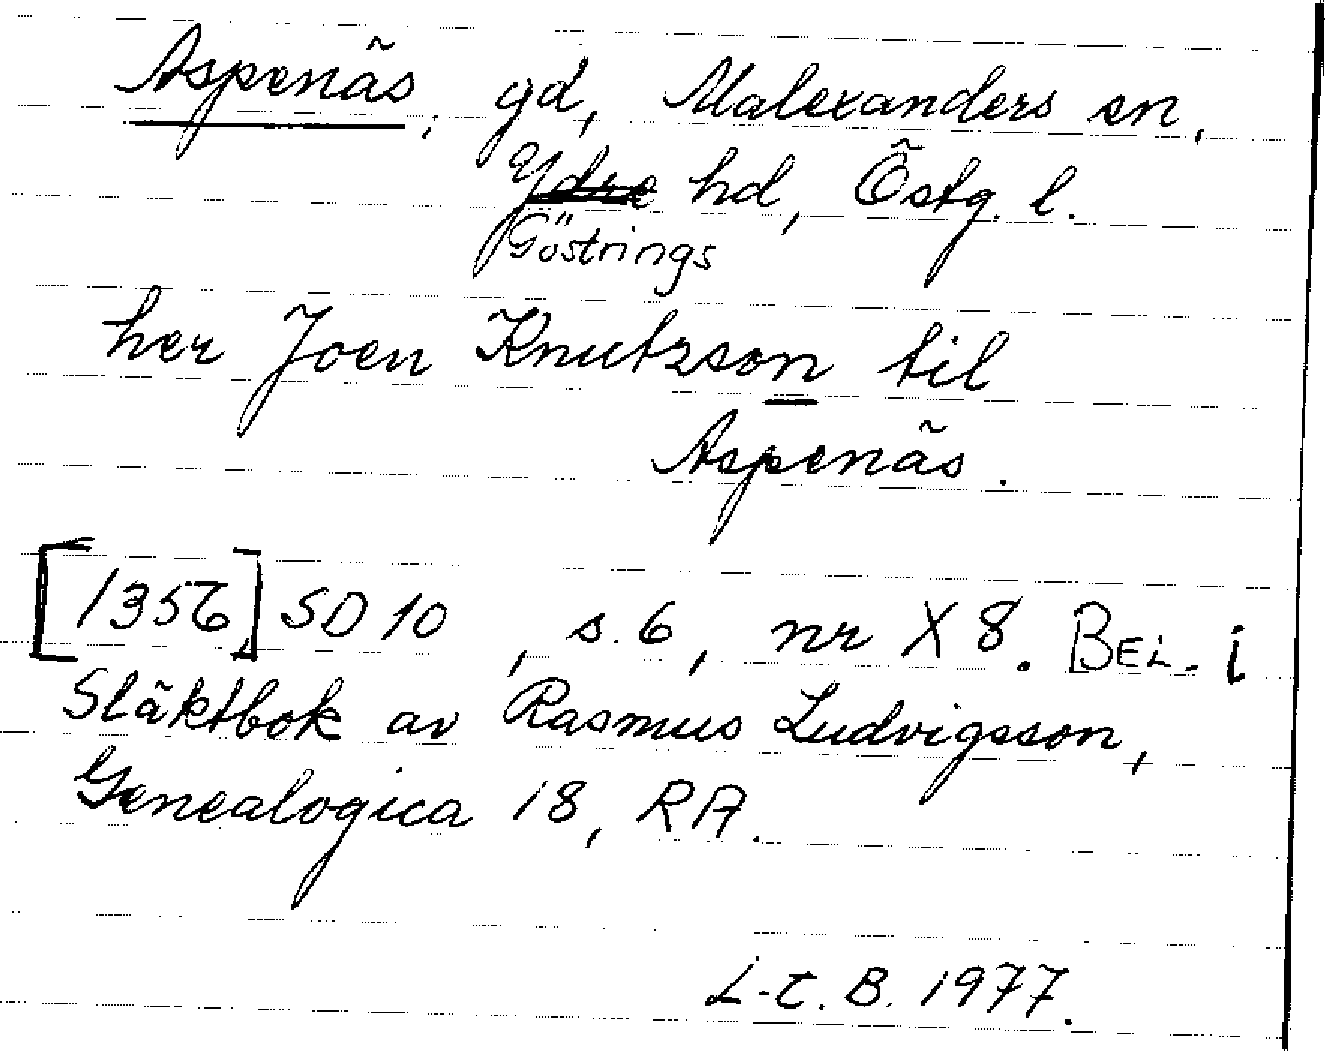 Aspenäs, gd, Malexanders sn,
Ydre hd, Östg. l.
Göstrings
her Joen Knutzson til
Aspenäs.
[1356] SD 10, s. 6, nr X 8. BEL. i
Släktbok av Rasmus Ludvigsson,
Genealogica 18, RA.
L-E. B. 1977.